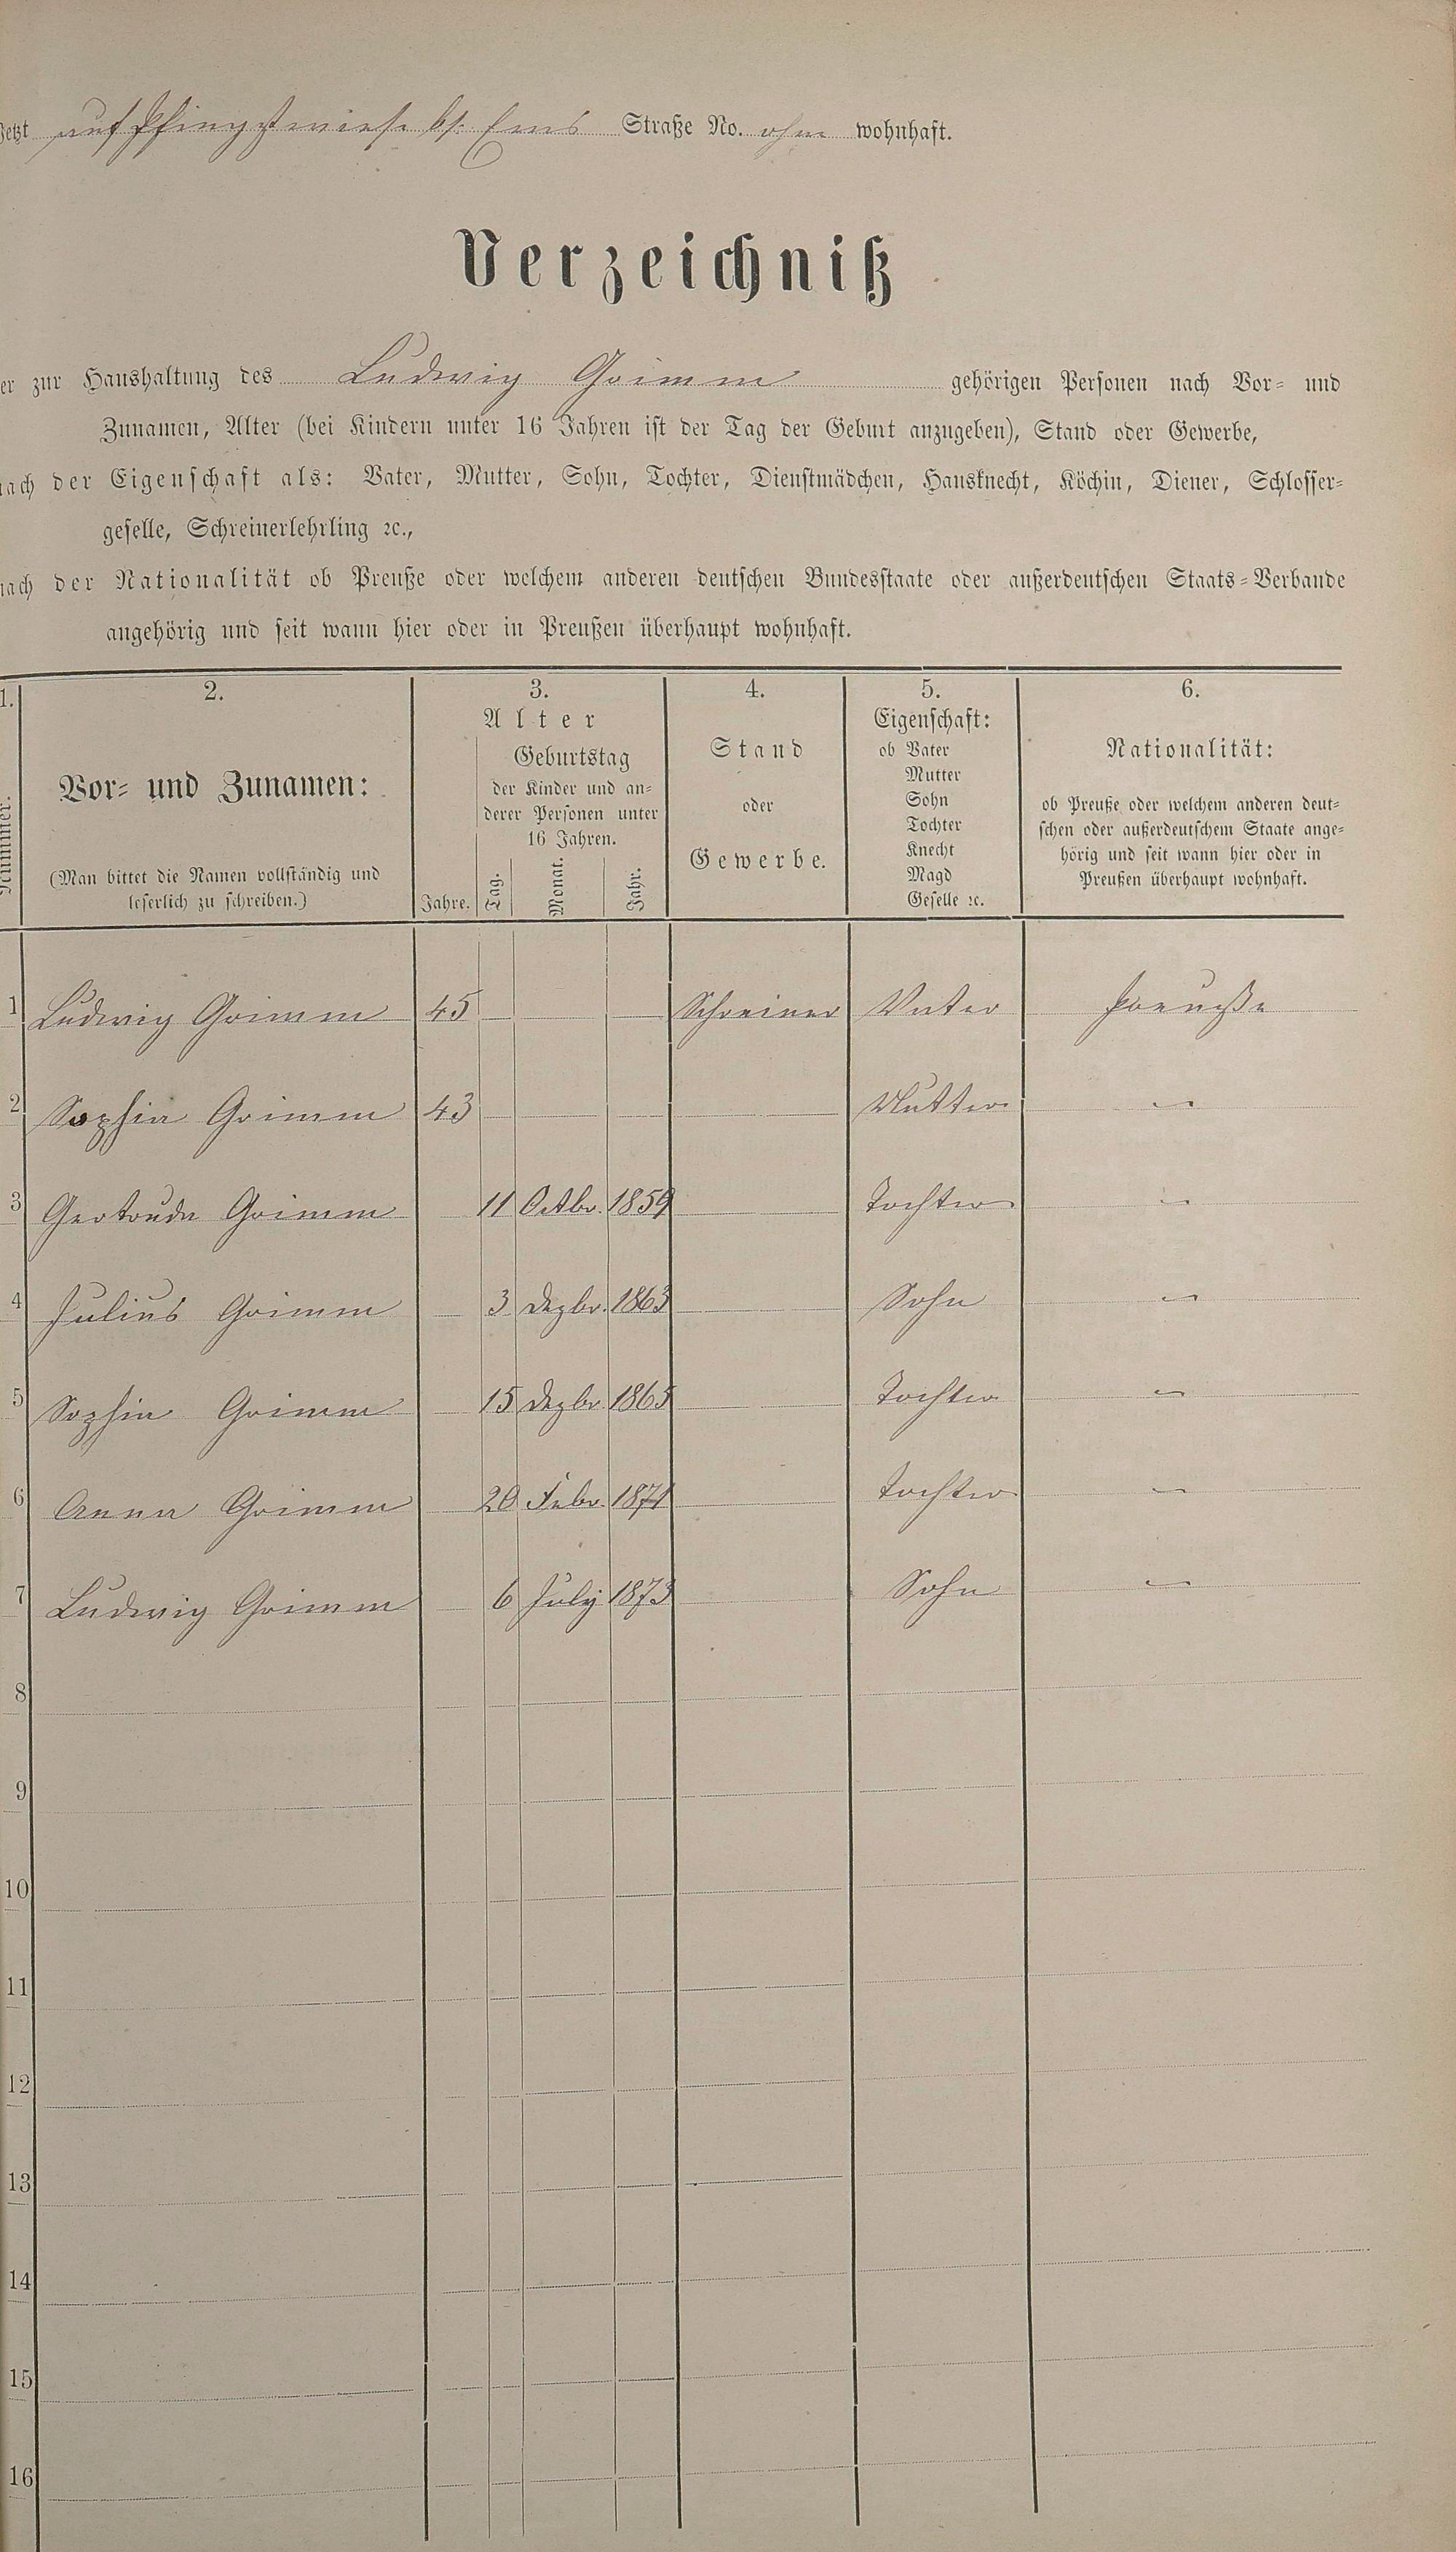 Jetzt auf Pfingstwiese bei Ems Straße No. ohne wohnhaft.
Verzeichniß
er zur Haushaltung des Ludwig Grimm gehörigen Personen nach Vor- und
Zunamen, Alter (bei Kindern unter 16 Jahren ist der Tag der Geburt anzugeben), Stand oder Gewerbe,
nach der Eigenschaft als: Vater, Mutter, Sohn, Tochter, Dienstmädchen, Hausknecht, Köchin, Diener, Schlosser-
geselle, Schreinerlehrling ꝛc.,
nach der Nationalität ob Preuße oder welchem anderen deutschen Bundesstaate oder außerdeutschen Staats-Verbande
angehörig und seit wann hier oder in Preußen überhaupt wohnhaft.
1. 2. 3. 4. 5. 6.
Nummer.
Vor- und Zunamen:
(Man bittet die Namen vollständig und
leserlich zu schreiben.)
Alter
Jahre.
Geburtstag
der Kinder und an-
derer Personen unter
16 Jahren.
Tag. Monat. Jahr.
Stand
oder
Gewerbe.
Eigenschaft:
ob Vater
Mutter
Sohn
Tochter
Knecht
Magd
Geselle ꝛc.
Nationalität:
ob Preuße oder welchem anderen deut-
schen oder außerdeutschem Staate ange-
hörig und seit wann hier oder in
Preußen überhaupt wohnhaft.
1 Ludwig Grimm 45 Schreiner Vater Preuße
2 Sophia Grimm 43 Mutter "
3 Gertrude Grimm 11 Octbr. 1859 Tochter "
4 Julius Grimm 3 Dezbr. 1863 Sohn "
5 Sophia Grimm 15 Dezbr. 1865 Tochter "
6 Anna Grimm 20 Febr. 1871 Tochter "
7 Ludwig Grimm 6 July 1873 Sohn "
8
9
10
11
12
13
14
15
16